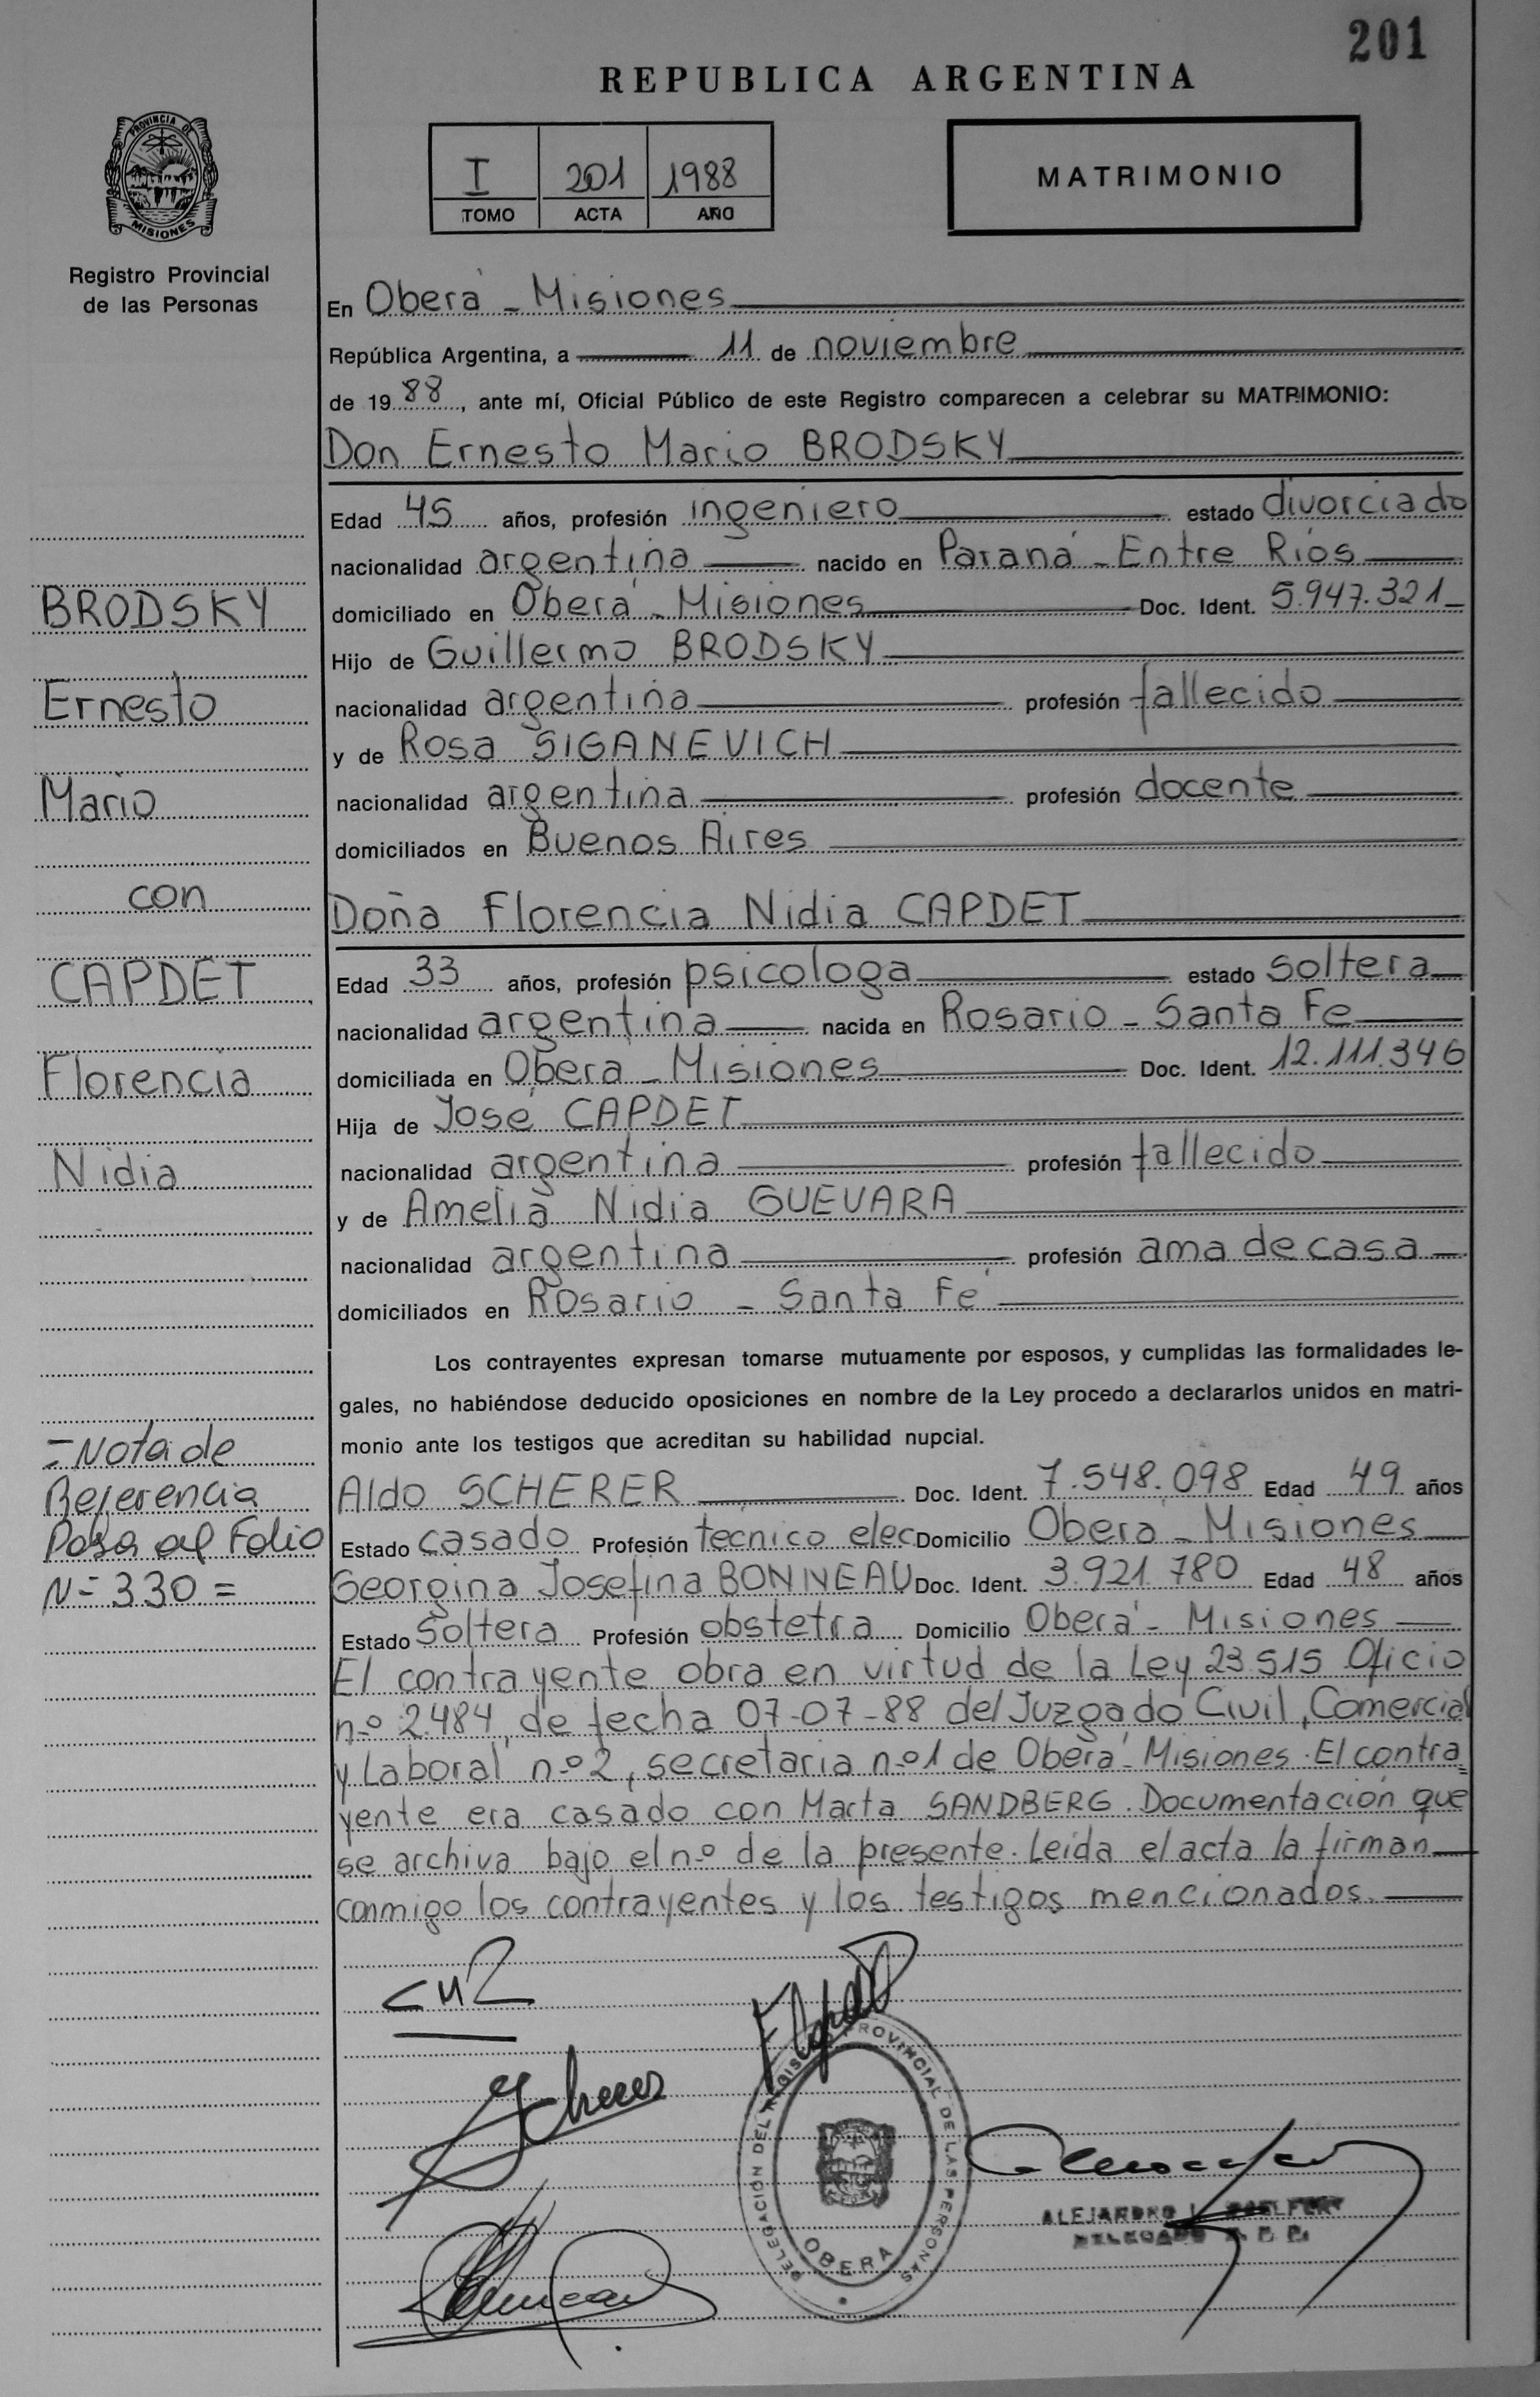 201
REPUBLICA ARGENTINA
PROVINCIA DE MISIONES
Registro Provincial
de las Personas
I 201 1988
TOMO ACTA AÑO
MATRIMONIO
En Oberá - Misiones
República Argentina, a 11 de noviembre
de 1988, ante mí, Oficial Público de este Registro comparecen a celebrar su MATRIMONIO:
Don Ernesto Mario BRODSKY
Edad 45 años, profesión ingeniero estado divorciado
nacionalidad argentina nacido en Paraná - Entre Ríos
domiciliado en Oberá - Misiones Doc. Ident. 5.947.321
Hijo de Guillermo BRODSKY
nacionalidad argentina profesión fallecido
y de Rosa SIGANEVICH
nacionalidad argentina profesión docente
domiciliados en Buenos Aires
Doña Florencia Nidia CAPDET
Edad 33 años, profesión psicologa estado soltera
nacionalidad argentina nacida en Rosario - Santa Fe
domiciliada en Oberá - Misiones Doc. Ident. 12.111.346
Hija de José CAPDET
nacionalidad argentina profesión fallecido
y de Amelia Nidia GUEVARA
nacionalidad argentina profesión ama de casa
domiciliados en Rosario - Santa Fé
Los contrayentes expresan tomarse mutuamente por esposos, y cumplidas las formalidades le-
gales, no habiéndose deducido oposiciones en nombre de la Ley procedo a declararlos unidos en matri-
monio ante los testigos que acreditan su habilidad nupcial.
Aldo SCHERER Doc. Ident. 7.548.098 Edad 49 años
Estado casado Profesión tecnico elec Domicilio Oberá - Misiones
Georgina Josefina BONNEAU Doc. Ident. 3.921.780 Edad 48 años
Estado soltera Profesión obstetra Domicilio Oberá - Misiones
El contrayente obra en virtud de la Ley 23.515 Oficio
n.º 2.484, de fecha 07-07-88 del Juzgado Civil, Comercial
y Laboral n.º 2, secretaria n.º 1 de Oberá - Misiones. El contra
yente era casado con Marta SANDBERG. Documentación que
se archiva bajo el n.º de la presente. Leída el acta la firman
conmigo los contrayentes y los testigos mencionados.
BRODSKY
Ernesto
Mario
con
CAPDET
Florencia
Nidia
= Nota de
Referencia
Pasa al Folio
Nº 330 =
DELEGACIÓN DEL REGISTRO PROVINCIAL DE LAS PERSONAS
OBERA
ALEJANDRO
DELEGADO